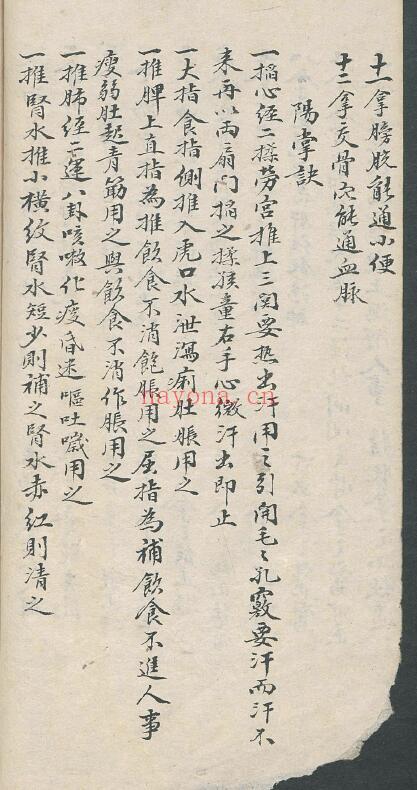 十一拿膀胱能通小便
十二拿交骨穴能通血脉
陽掌訣
一掐心經二揉勞宫推上三関要热出汗用之引開毛〻孔竅要汗而汗不
来再以両扇门掐之揉孩童右手心微汗出即止
一大指食指側推入虎口水泄瀉痢肚脹用之
一推脾上直指為推飲食不消飽脹用之屈指為補飲食不進人事
瘦弱肚起青筋用之與飲食不消作脹用之
一推肺經二運八卦咳嗽化痰昏迷嘔吐噦用之
一推腎水推小横紋腎水短少則補之腎水赤红則清之
nayona.cn